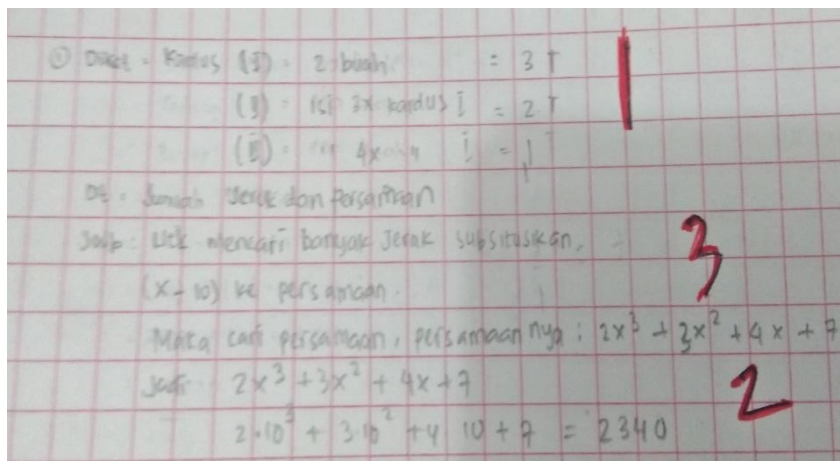 ① Diket = Kardus (I) = 2 buah = 3 T
(I) = isi 3x kardus I = 2 T
(I) = 4x I = 1
Dt = Jumlah Jeruk dan Persamaan
Jwb : Utk mencari banyak Jeruk subsitusikan,
(x-10) ke persamaan.
Maka cari persamaan, persamaannya : 2x³ + 3x² + 4x + 7
Jadi 2x³ + 3x² + 4x + 7
2·10³ + 3·10² + 4 10 + 7 = 2340
1
3
2